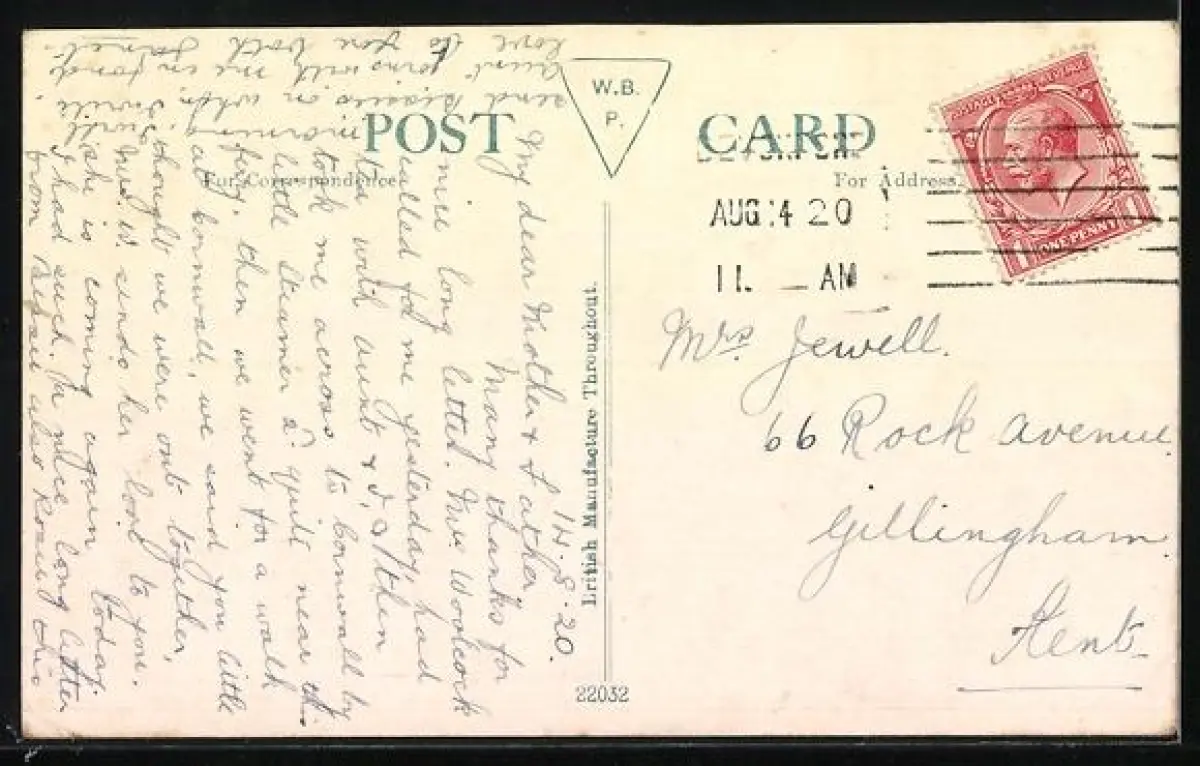 POST CARD
W.B.
P.
For Correspondence.
For Address.
DEVONPORT
AUG 14 20
11. AM
ONE PENNY
1 1
British Manufacture Throughout.
22032
Mrs Jewell.
66 Rock Avenue
Gillingham.
Kent
14.8.20.
My dear Mother & Father
Many thanks for
nice long letter. Mrs Woolcock
called for me yesterday, had
tea with aunt & I, & then
took me across to Cornwall by
little steamer 2d quite near this
ferry, then we went for a walk
at Cornwall, we said you little
thought we were out together,
Mrs W sends her love to you.
she is coming again today.
I had such a nice long letter
from also Rosie this
morning, I will write
send kisses on when
Aunt joins with me in fond
love to you both Janet.